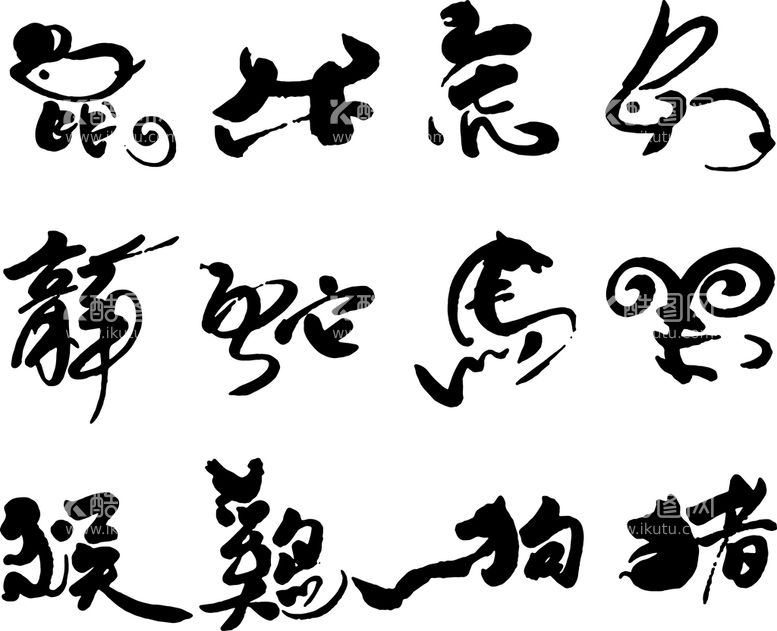 鼠 牛 虎 兔
龍 蛇 馬 羊
猴 鷄 狗 猪
酷图网
www.ikutu.com